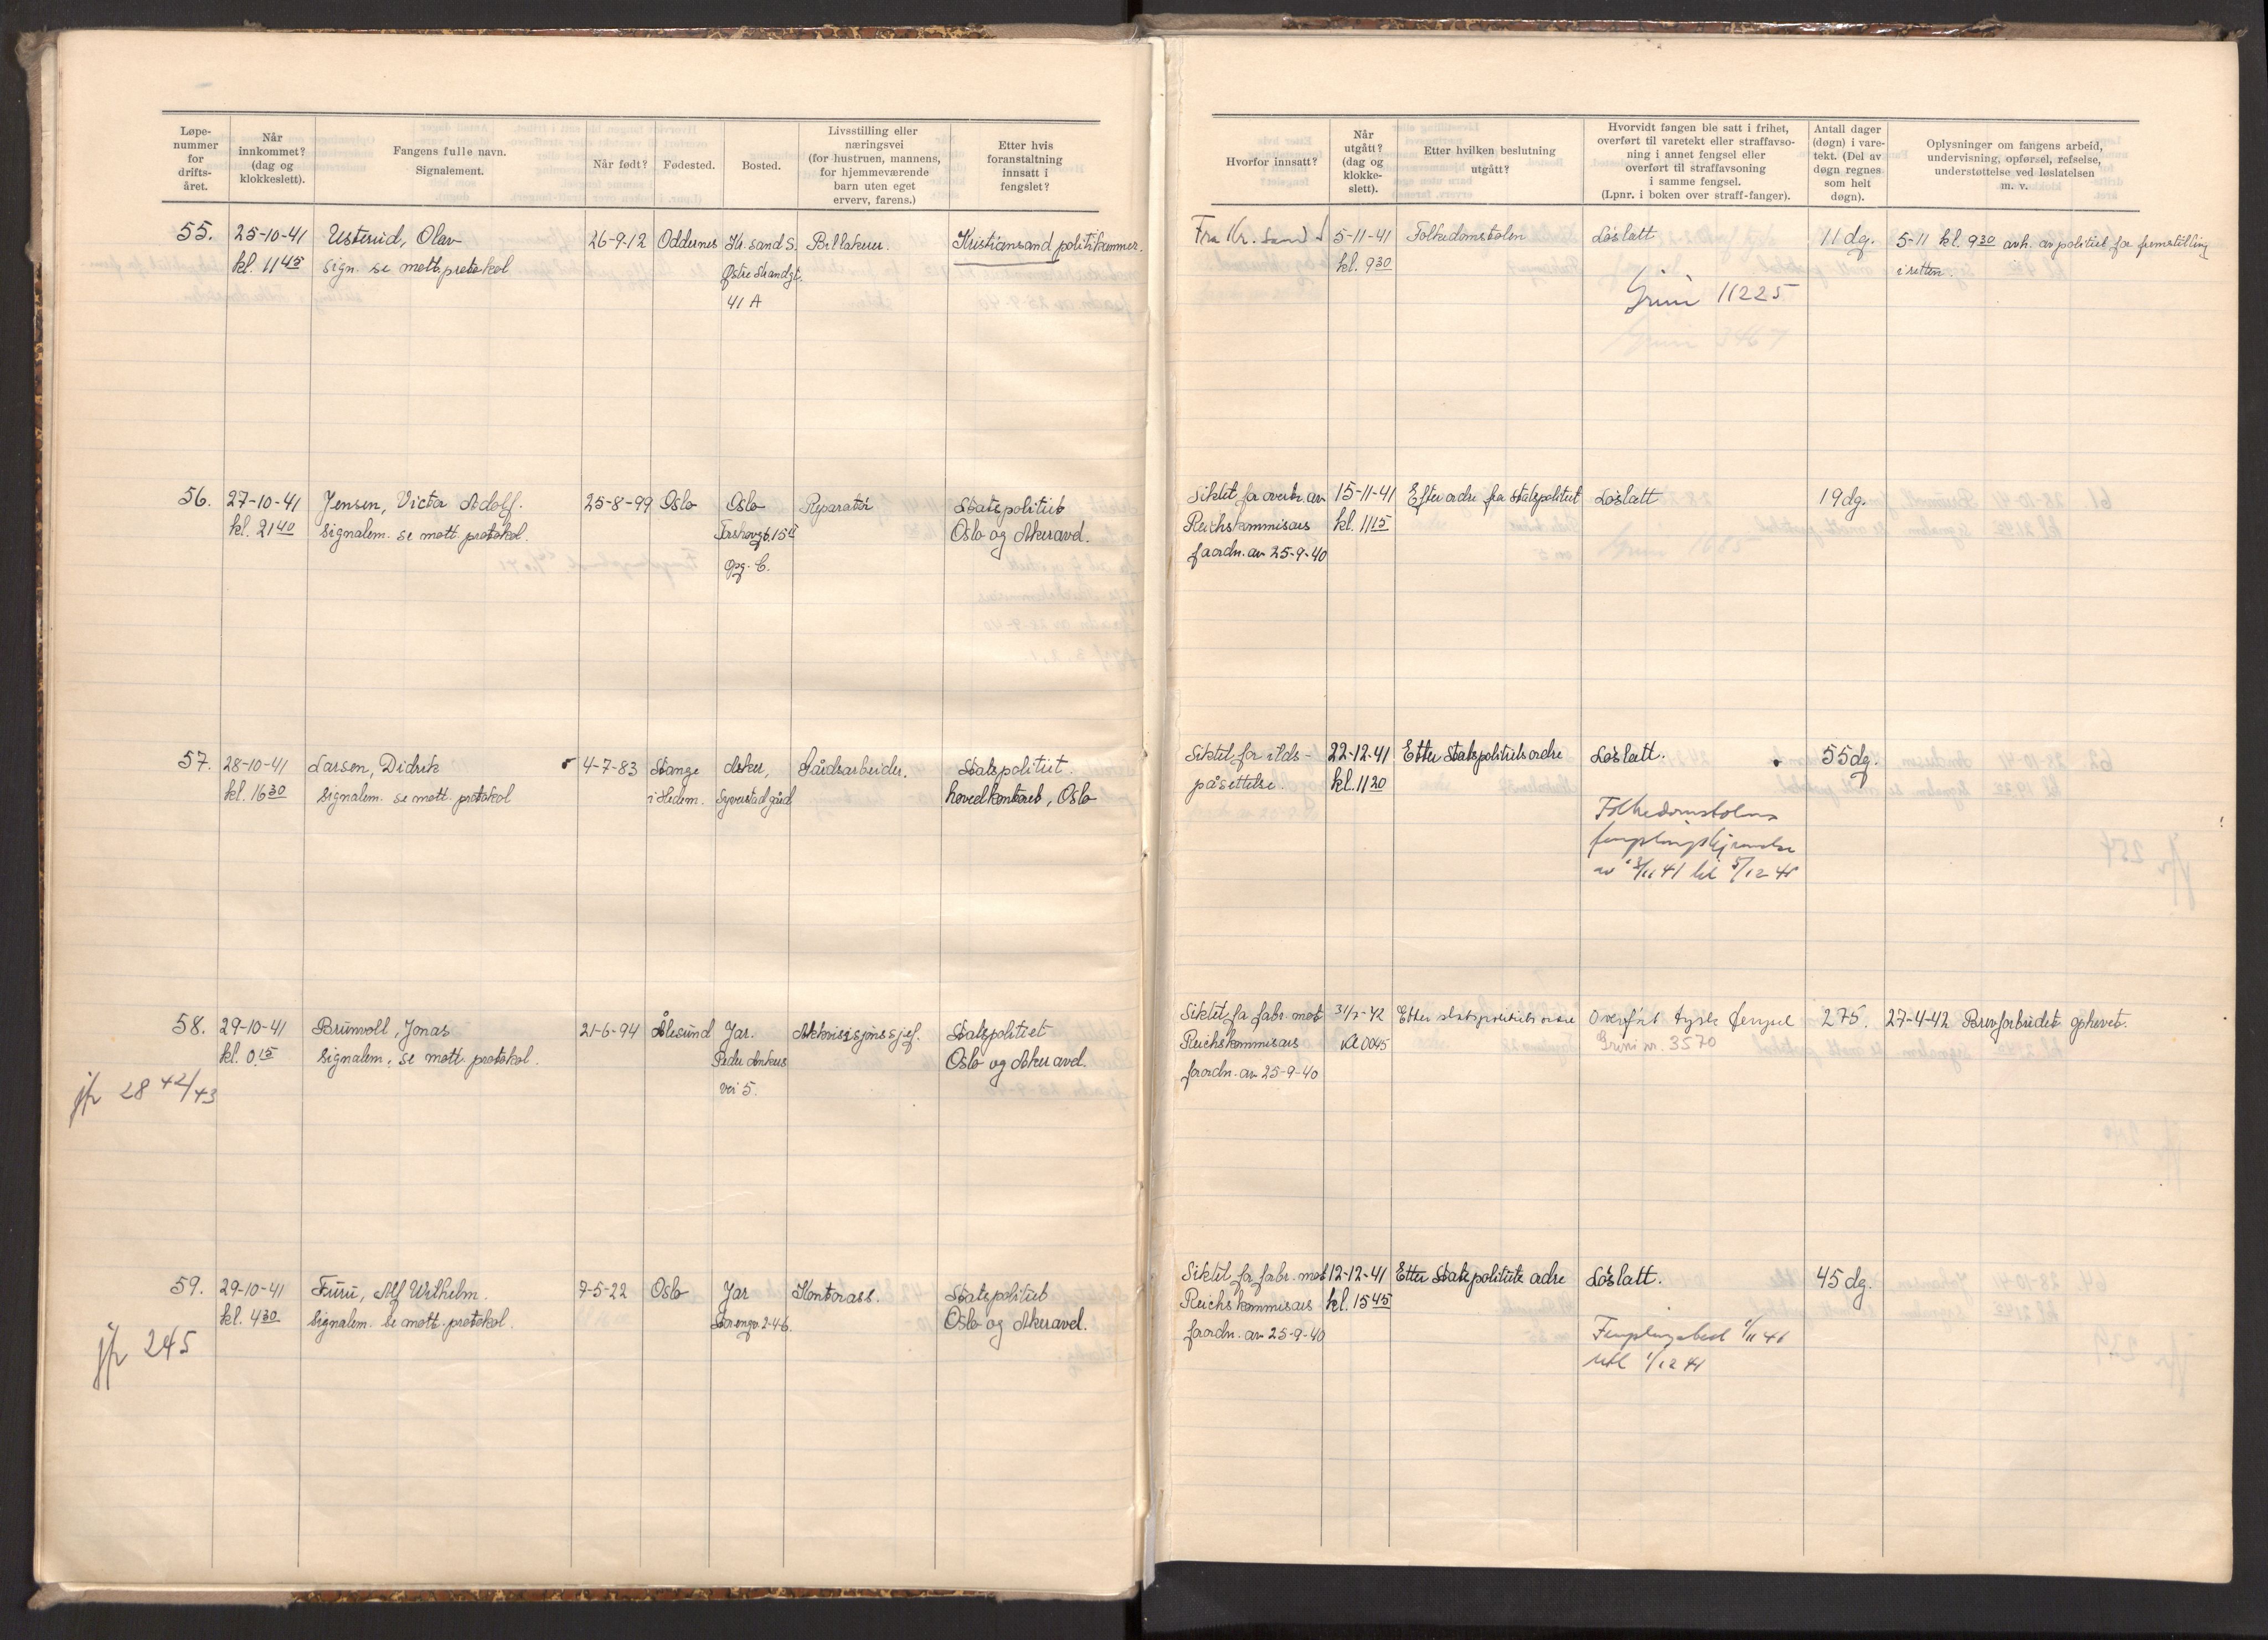 Løpe-
nummer
for
drifts-
året.
Når
innkommet?
(dag og
klokkeslett).
Fangens fulle navn.
Signalement.
Når født?
Fødested.
Bosted.
Livsstilling eller
næringsvei
(for hustruen, mannens,
for hjemmeværende
barn uten eget
erverv, farens.)
Etter hvis
foranstaltning
innsatt i
fengslet?
Hvorfor innsatt?
Når
utgått?
(dag og
klokke-
slett).
Etter hvilken beslutning
utgått?
Hvorvidt fangen ble satt i frihet,
overført til varetekt eller straffavso-
ning i annet fengsel eller
overført til straffavsoning
i samme fengsel.
(Lpnr. i boken over straff-fanger).
Antall dager
(døgn) i vare-
tekt. (Del av
døgn regnes
som helt
døgn).
Oplysninger om fangens arbeid,
undervisning, opførsel, refselse,
understøttelse ved løslatelsen
m. v.
55. 25-10-41 Usterud, Olav 26-9-12 Oddernes Kr.sand S. Billakerer. Kristiansand politikammer.
kl. 11 45 Sign. se mott.protokol Østre Strandgt.
41 A
Fra Kr. Sand S 5-11-41 Folkedomstolen Løslatt 11 dg. 5-11 kl. 9 30 avh. av politiet for fremstilling
kl. 9 30 i retten.
Grini 11225
56. 27-10-41 Jensen, Victor Adolf. 25-8-99 Oslo Oslo Reparatør Statspolitiet
kl. 21 40 Signalem. se mott. protokol. 15 Oslo og Aker avd.
Opg. C.
Siktet for overtr. av 15-11-41 Efter ordre fra Statspolitiet Løslatt 19 dg.
Reichskommisars kl. 11 15
forordn. av 25-9-40
57. 28-10-41 Larsen, Didrik 4-7-83 Stange Asker, Gårdsarbeider. Statspolitiet.
kl. 16 30 Signalem. se mott. protokol i Hedem. Syverstad gård hovedkontoret, Oslo
Siktet for ilds- 22-12-41 Etter Statspolitiets ordre Løslatt. 55 dg.
påsettelse. kl. 11 20
Folkedomstolens
fengslingskjennelse
av 3/11 41 til 5/12 41
58. 29-10-41 Brunvoll, Jonas 21-6-94 Ålesund Jar. Akkvisisjonssjef. Statspolitiet
kl. 0 15 Signalem. se mott. protokol. Peder Ankers Oslo og Aker avd.
vei 5.
jfr 28 42/43
Siktet for forbr. mot 31/7-42 Etter statspolitiets ordre Overført tysk fengsel 275. 27-4-42 Brevforbudet ophevet.
Reichskommisars Kl 0045 Grini nr. 3570
forordn. av 25-9-40
59. 29-10-41 Furu, Alf Wilhelm. 7-5-22 Oslo Jar Kontorass. Statspolitiet
kl. 4 30 Signalem. se mott. protokol. Storengv. 246. Oslo og Aker avd.
jfr 245
Siktet for forbr. mot 12-12-41 Etter Statspolitiets ordre Løslatt. 45 dg.
Reichskommisars kl. 15 45
forordn. av 25-9-40
Fengslingsbesl 1/11 41
1/12 41